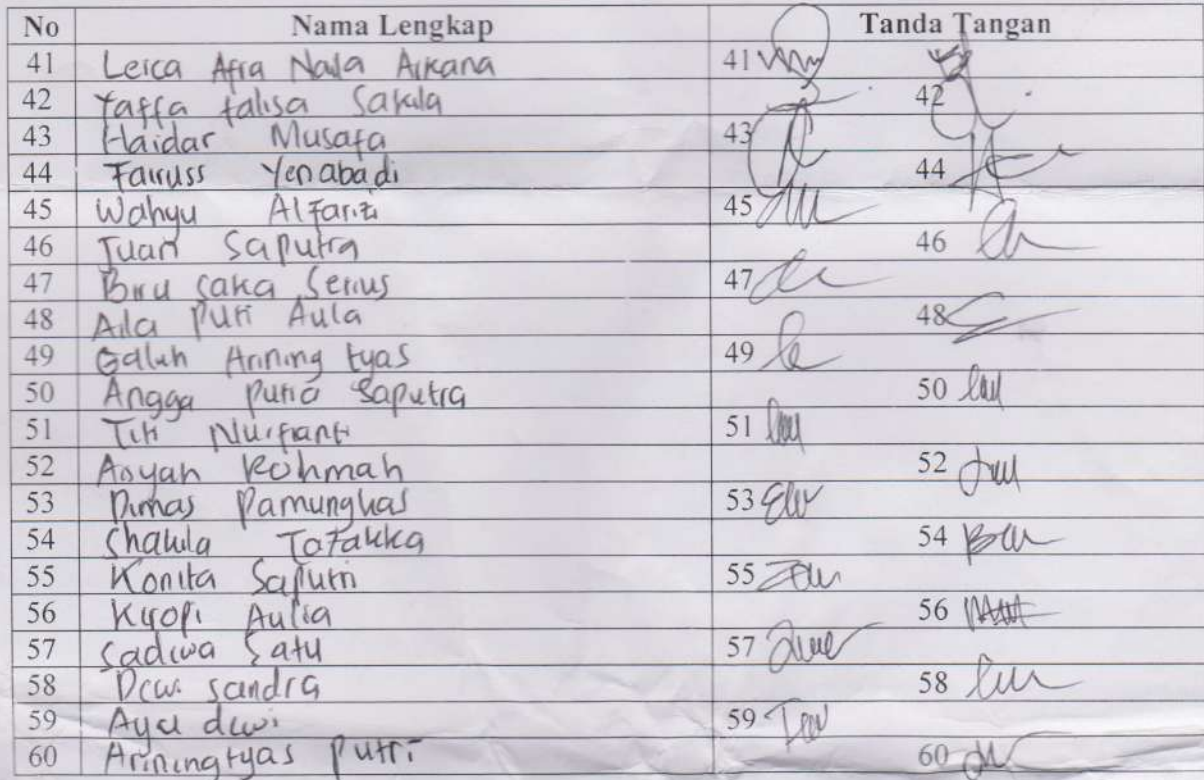 No Nama Lengkap Tanda Tangan
41 Leica Afra Nada Arkana 41
42 Yaffa talisa Sakila 42
43 Haidar Musafa 43
44 Fairuss Yenabadi 44
45 Wahyu Alfarizi 45
46 Juan Saputra 46
47 Biru Saka Serius 47
48 Aila Putri Aula 48
49 Galuh Arining tyas 49
50 Angga Putra Saputra 50
51 Titi Nurfianti 51
52 Aisyah Rohmah 52
53 Dimas Pamungkas 53
54 Shakila Tafakka 54
55 Konita Saputri 55
56 Aulia 56
57 Sadiwa Satu 57
58 Dewi sandra 58
59 Ayu dewi 59
60 Ariningtyas Putri 60